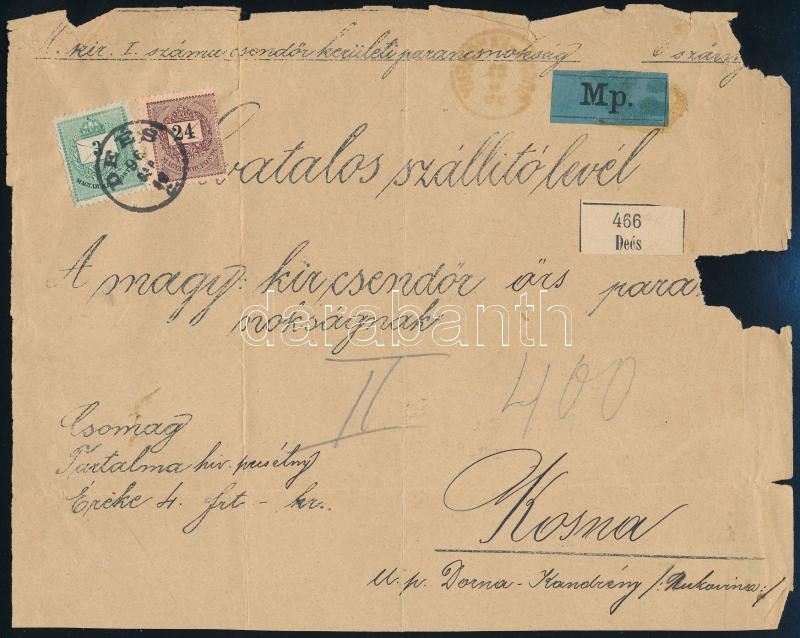 M. kir. I. számu csendőr kerületi parancsnokság
Mp.
3
24
MAGYAR
DEÉS
Hivatalos szállitólevél
466
Deés
A magy: kir csendőr örs para
nokságnak
darabanth
II 400
Csomag
Tartalma hiv. pecsélny
Éréke 4. frt - kr..
Kosna
U. p. Dorna-Kandrény /:Bukovina:/